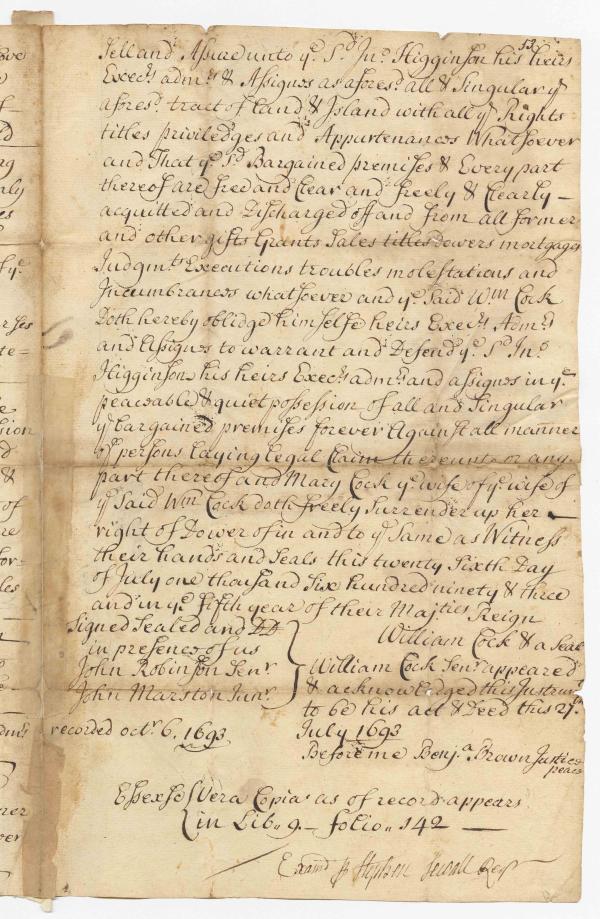 53
Sell and Assure unto yͤ Sᵈ Jnᵒ Higginson his heirs
Execʳˢ admʳˢ & Assignes as aforesᵈ all & Singular yͤ
aforesᵈ tract of Land & Island with all yͤ Rights
titles priviledges and Appurtenances Whatsoever
and That yͤ Sᵈ Bargained premises & Every part
thereof are free and Clear and freely & Clearly –
acquitted and Discharged off and from all former
and other gifts Grants Sales titles Dowers mortgages
Judgmᵗˢ Executions troubles molestations and
Incumbrances whatsoever and yͤ Said Wᵐ Cock
Doth hereby oblidge himselfe heirs Execʳˢ Admʳˢ
and Assignes to warrant and Defend yͤ Sᵈ Jnᵒ
Higginson his heirs Execʳˢ admʳˢ and assignes in yͤ
peaceable & quiet possession of all and Singular
yͤ Bargained premises forever Against all manner
of persons Laying Legal Claim thereunto or any
part thereof and Mary Cock yͤ wife of yͤ wife of
yͤ Said Wᵐ Cock doth freely Surrender up her –
right of Dower of in and to yͤ Same as Witness
their hands and Seals this twenty Sixth Day
of July one thousand Six hundred ninety & three
and in yͤ fifth year of their Majᵗⁱᵉˢ Reign
Signed Sealed and DD
in presence of us
John Robinson Senʳ
John Marston Junʳ
recorded octʳ 6. 1693
William Cock & a Seal
William Cock Senʳ appeared
& acknowledged this Instrumᵗ
to be his act & Deed this 27ᵗʰ
July 1693
Before me Benjᵃ Brown Justice
peace
Essex Sc Vera Copia as of record appears
in Lib. 9. folio. 142 —
Examᵈ ꝑ Stephen Sewall Regʳ